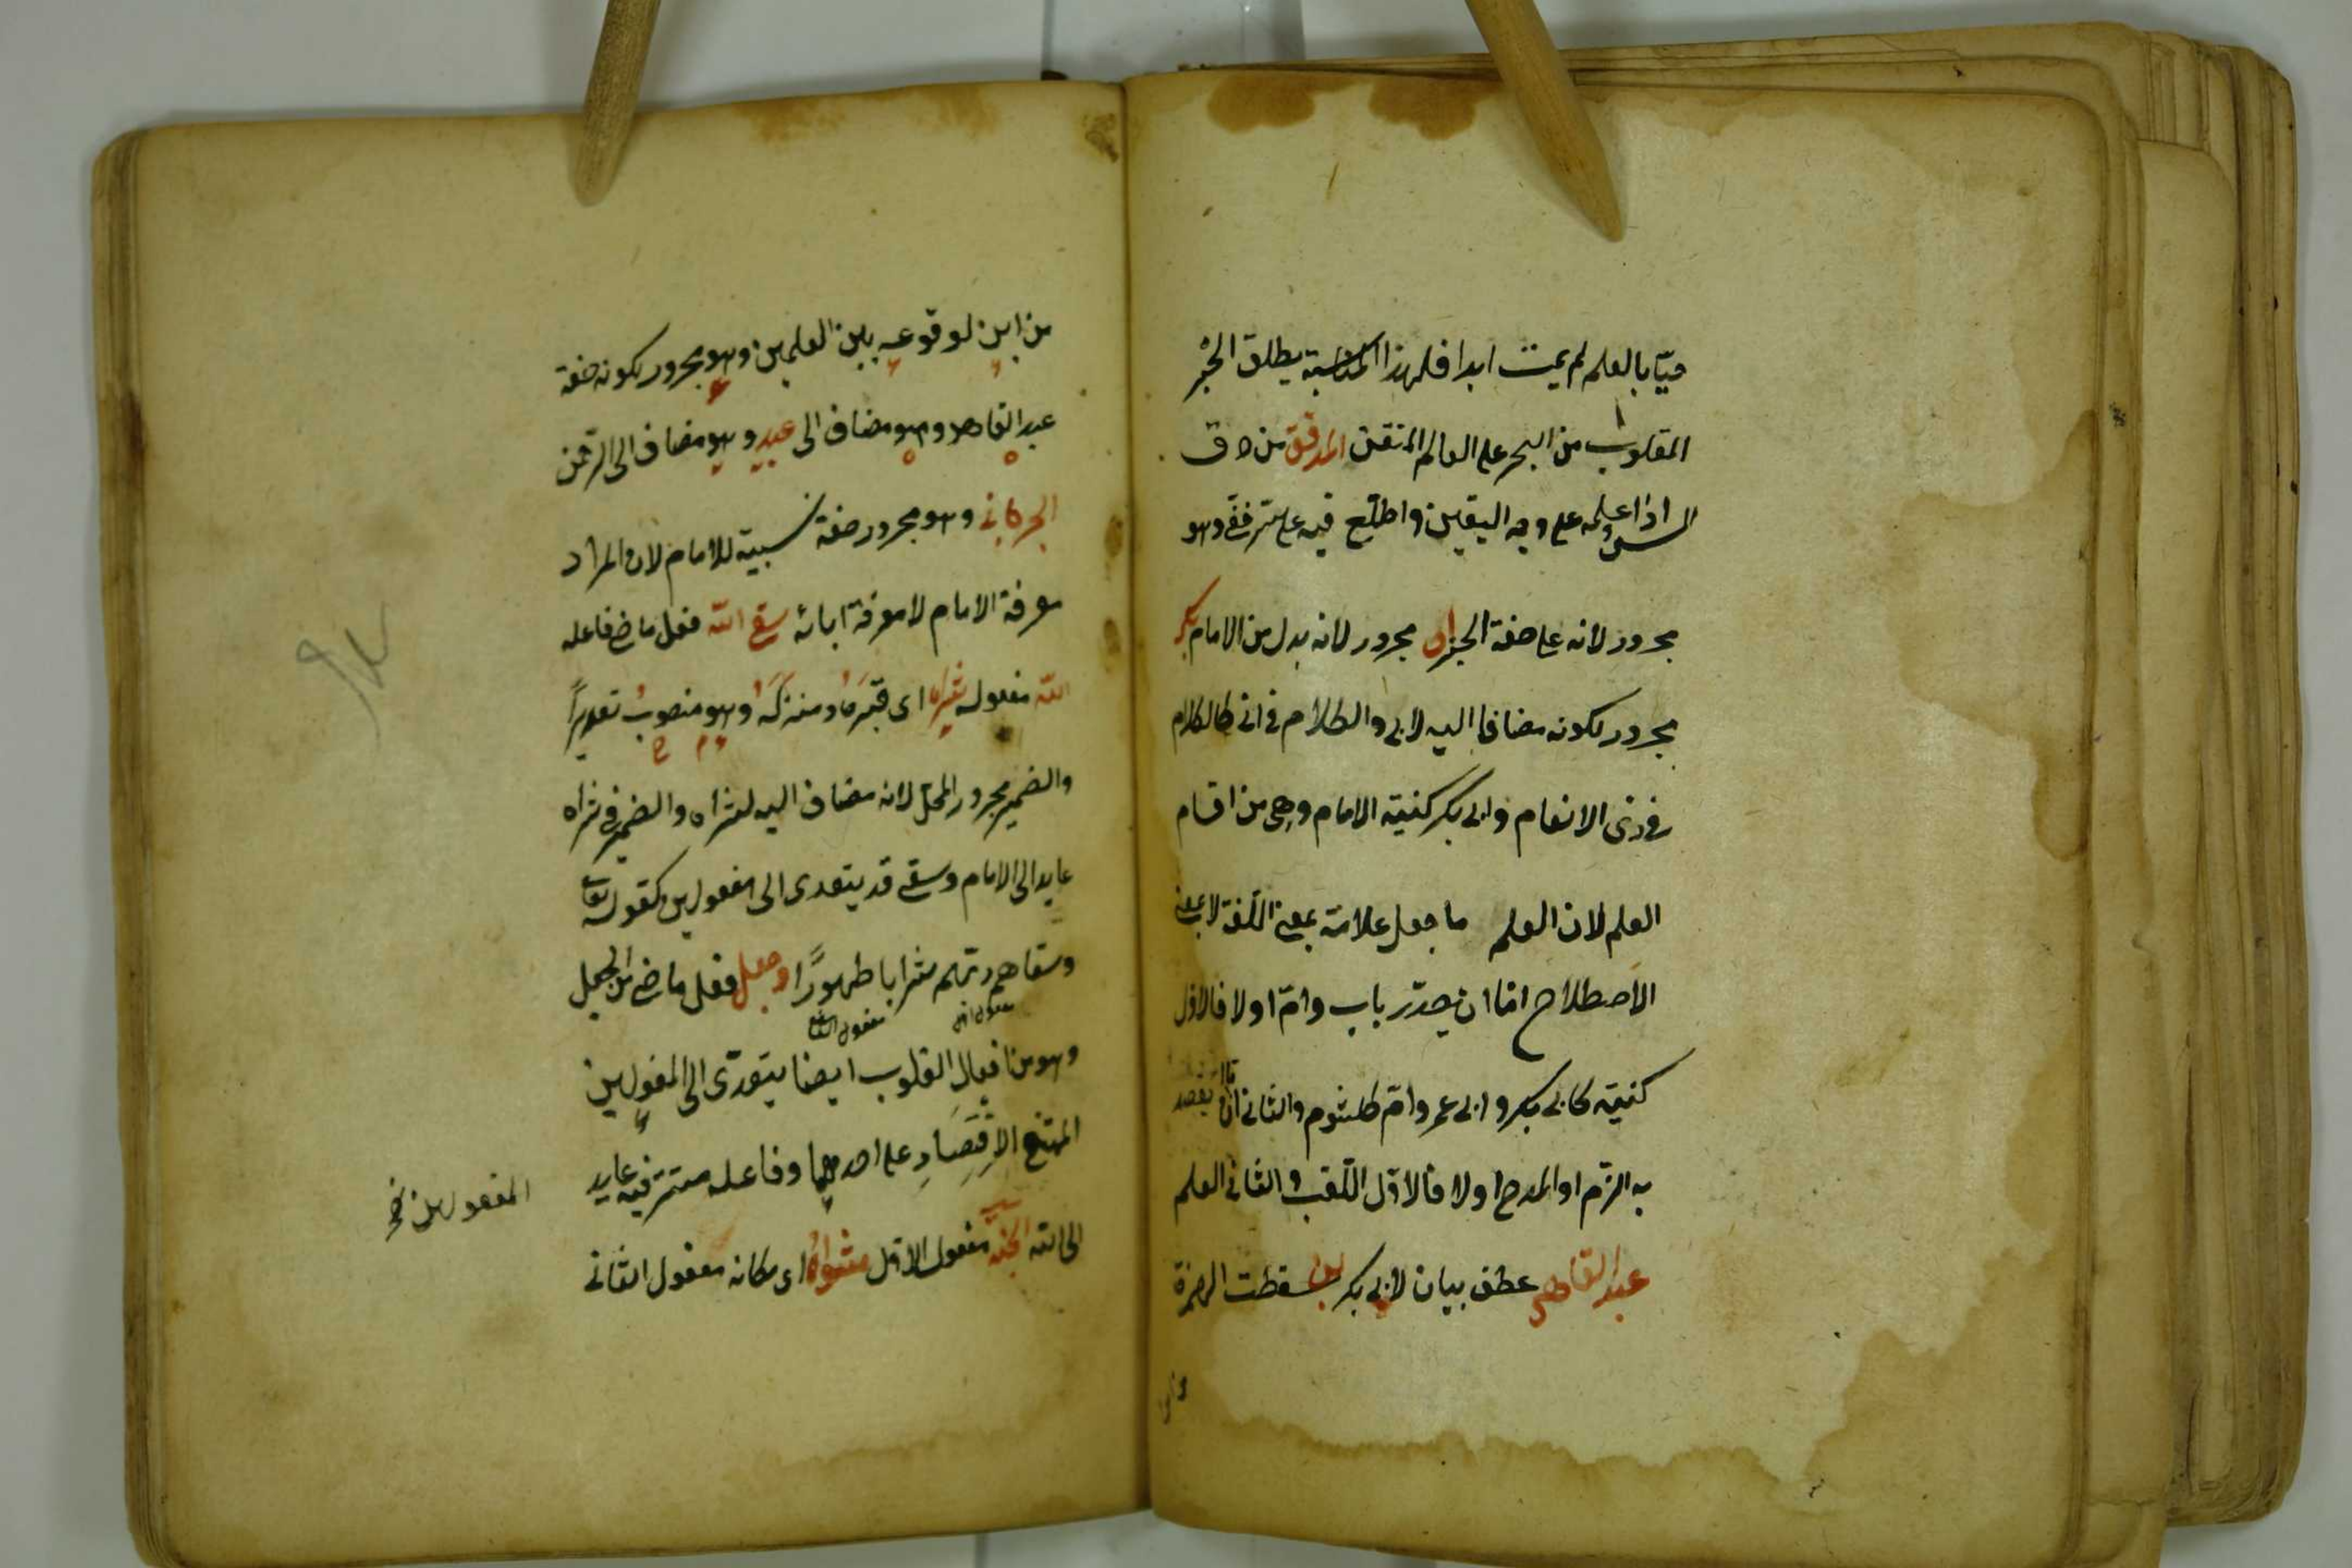 حيّا بالعلم لم يمت ابدا فلهذا المناسبة يطلق الحبر
المقلوب من البحر على العالم المتقن المدقق من دق
الشئ اذا علمه على وجه اليقين واطلع فيه على سر خفى وهو
مجرور لانه على صفة الحبر ابى مجرور لانه بدل من الامام بكر
مجرور لكونه مضافا اليه لابى والكلام فى ابى كالكلام
فى ذى الانعام وابى بكر كنية الامام وهى من اقسام
العلم لان العلم ما جعل علامة بمعنى اللغة لا بمعنى
الاصطلاح امّا ان يصدّر باب وامّ اولا فالاول
كنية كابى بكر وابى عمرو وامّ كلثوم والثانى امّا ان يقصد
به الذم او المدح اولا فالاوّل اللّقب والثانى العلم
عبد القاهر عطف بيان لابى بكر بن سقطت الهمزة
من ابن لوقوعه بين العلمين وهو مجرور لكونه صفة
عبد القاهر وهو مضاف الى عبد وهو مضاف الى الرّحمن
الجرجانى وهو مجرور صفة نسبية للامام لان المراد
معرفة الامام لا معرفة ابائه سقى الله فعل ماض فاعله
الله مفعوله ثراه اى قبره ومنزله وهو منصوب تقديراً
والضمير مجرور المحل لانه مضاف اليه لثراه والضمير فى ثراه
عايد الى الامام وسقى قد يتعدى الى مفعولين كقوله تعالى
وسقاهم ربّهم شرابا طهورًا وجعل فعل ماض من الجعل
مفعول الثانى
وهو من افعال القلوب ايضا يتعدّى الى المفعولين
الممتنع الاقتصار على احدهما وفاعله مستتر فيه عايد
المفعولين نخ
الى الله الجنّة مفعول الاول مثواه اى مكانه مفعول الثانى